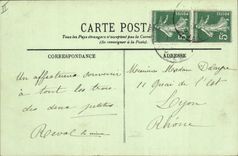 CARTE POSTALE
Tous les Pays étrangers n'acceptent pas la Correspondance
(Se renseigner à la Poste)
CORRESPONDANCE
ADRESSE
Un affectueux souvenir
à tous les trois
des deux petites
Monsieur Madame
11 Quai de l'Est
Lyon
Rhône